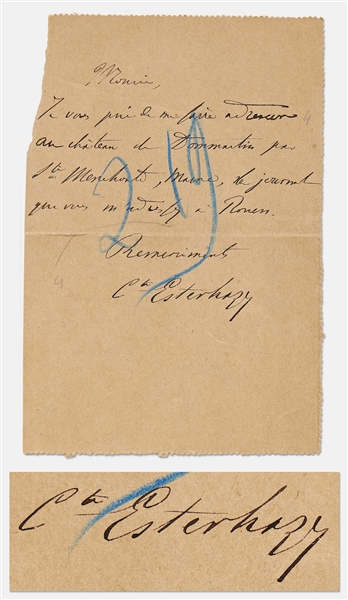 Monsieur,
Je vous prie de me faire adresser
au château de Dommartin par
Ste Menehould, Marne, le journal
que vous m'adressez à Rouen.
Remerciements
Cte Esterhazy
Cte Esterhazy